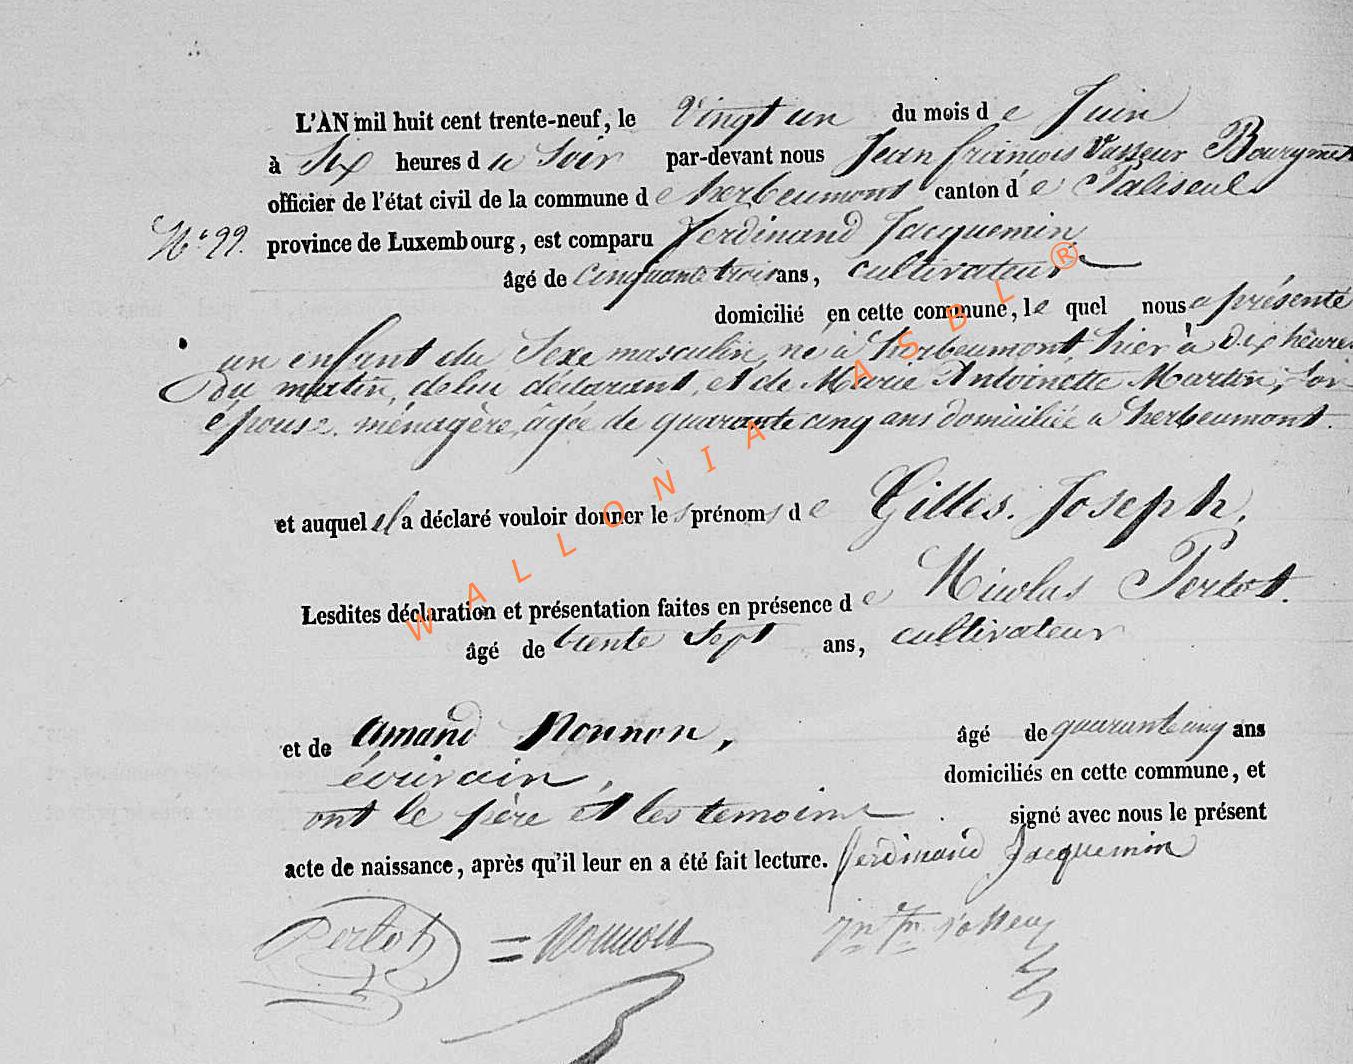 L'AN mil huit cent trente-neuf, le Vingt un du mois d e Juin
à Six heures d u Soir par-devant nous Jean françois Vasseur Bourgmet
officier de l'état civil de la commune d e herbeumont canton d e Paliseul
N° 22. province de Luxembourg, est comparu Ferdinand Jacquemin
âgé de Cinquante trois ans, cultivateur
domicilié en cette commune, le quel nous a présenté
un enfant du Sexe masculin, né à herbeumont, hier à dix heures
du matin, de lui déclarant, et de Marie Antoinette Martin, son
épouse, ménagère, agée de quarante cinq ans domiciliée a herbeumont.
et auquel il a déclaré vouloir donner le s prénom s d e Gilles. Joseph.
Lesdites déclaration et présentation faites en présence d e Nicolas Perlot.
âgé de trente Sept ans, cultivateur
et de Amand Nonnon, âgé de quarante cinq ans
écrivain, domiciliés en cette commune, et
ont le père et les temoins signé avec nous le présent
acte de naissance, après qu'il leur en a été fait lecture. Ferdinand Jacquemin
Perlot = Nonnon Jn Fn Vasseur
WALLONIA ASBL ®